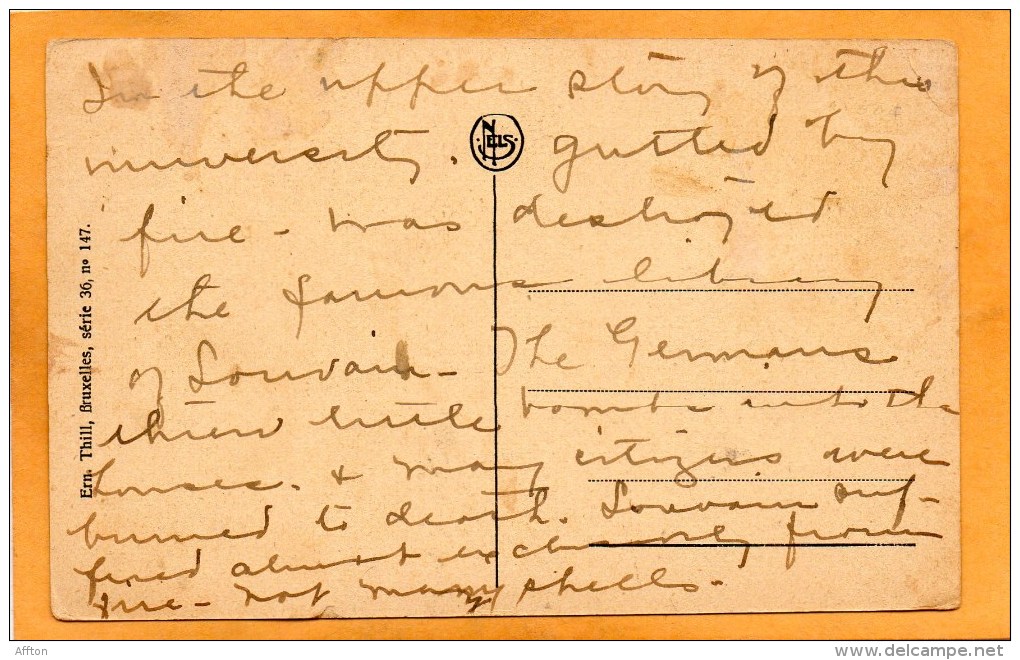 In the upper story of this
university. gutted by
fire - was destroyed
the famous library
of Louvain - The Germans
threw little bombs into the
houses. & many citizens were
burned to death. Louvain suf-
fered almost exclusively from
fire - not many shells.
NELS
Ern. Thill, Bruxelles, série 36, nº 147.
Affton
www.delcampe.net